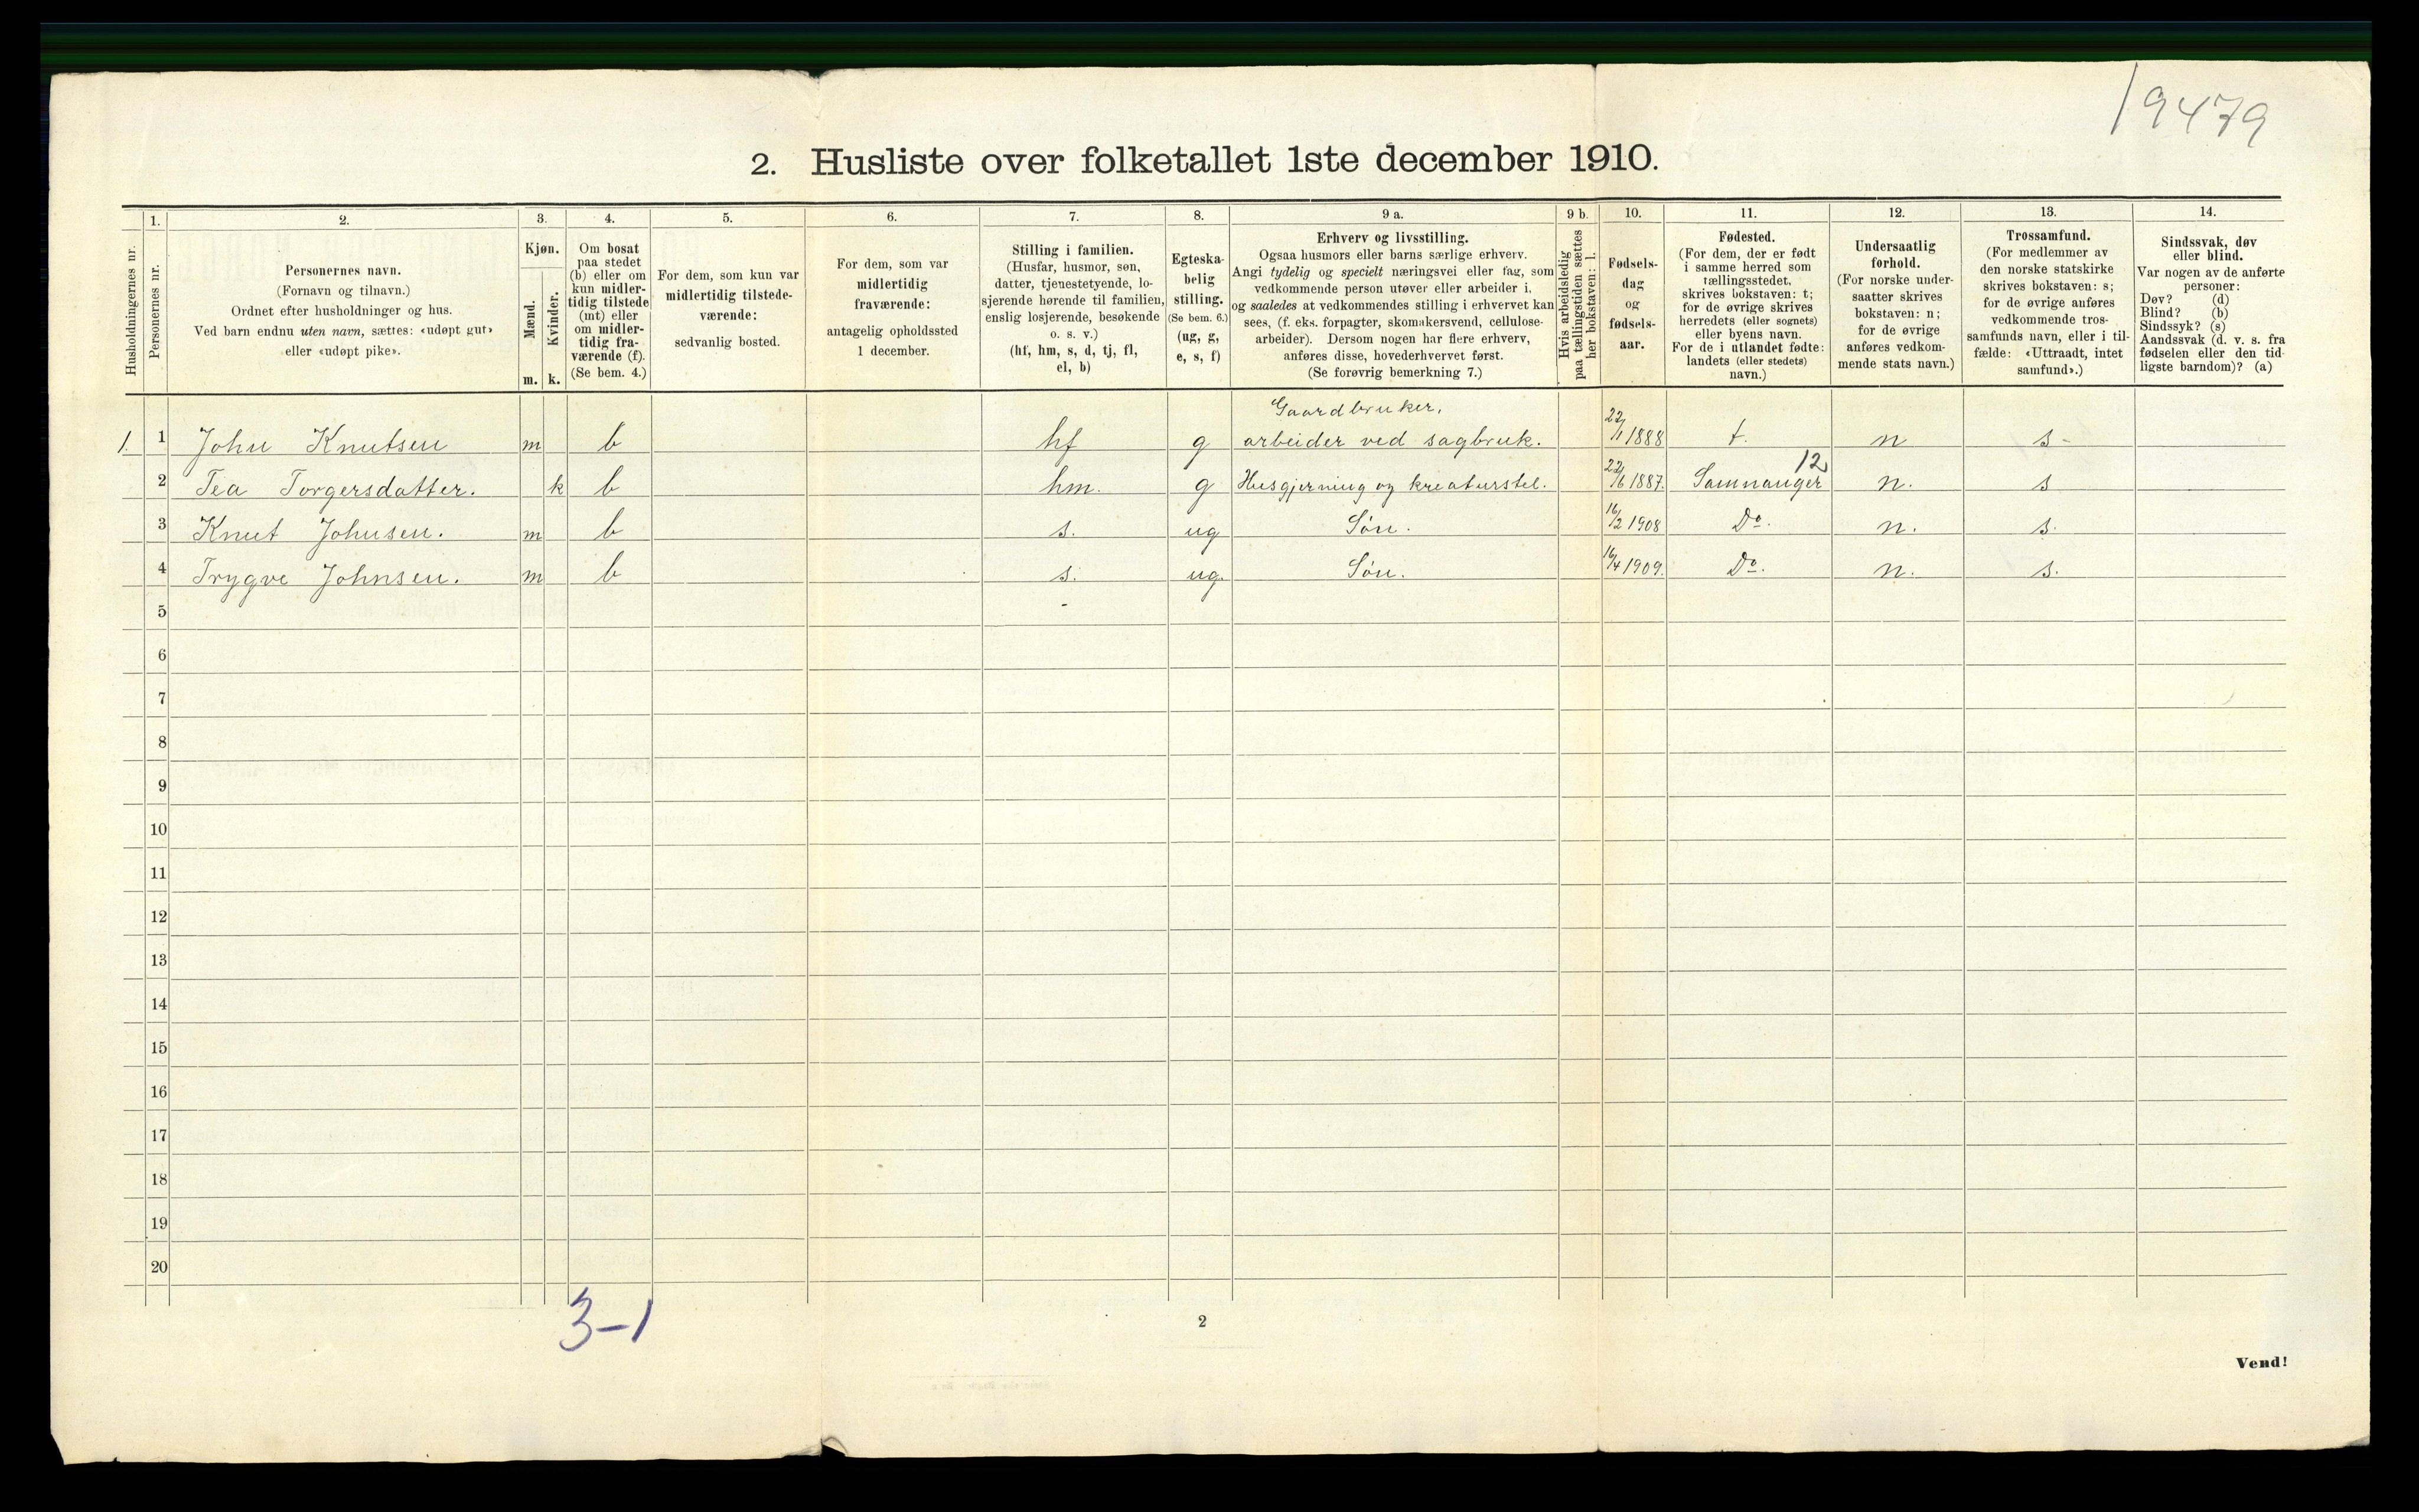 19479
2. Husliste over folketallet 1ste december 1910.
Husholdningernes nr.
1.
Personernes nr.
2.
Personernes navn.
(Fornavn og tilnavn.)
Ordnet efter husholdninger og hus.
Ved barn endnu uten navn, sættes: «udøpt gut»
eller «udøpt pike».
3.
Kjøn.
Mænd.
Kvinder.
m. k.
4.
Om bosat
paa stedet
(b) eller om
kun midler-
tidig tilstede
(mt) eller
om midler-
tidig fra-
værende (f).
(Se bem. 4.)
5.
For dem, som kun var
midlertidig tilstede-
værende:
sedvanlig bosted.
6.
For dem, som var
midlertidig
fraværende:
antagelig opholdssted
1 december.
7.
Stilling i familien.
(Husfar, husmor, søn,
datter, tjenestetyende, lo-
sjerende hørende til familien,
enslig losjerende, besøkende
o. s. v.)
(hf, hm, s, d, tj, fl,
el, b)
8.
Egteska-
belig
stilling.
(Se bem. 6.)
(ug, g,
e, s, f)
9 a.
Erhverv og livsstilling.
Ogsaa husmors eller barns særlige erhverv.
Angi tydelig og specielt næringsvei eller fag, som
vedkommende person utøver eller arbeider i,
og saaledes at vedkommendes stilling i erhvervet kan
sees, (f. eks. forpagter, skomakersvend, cellulose-
arbeider). Dersom nogen har flere erhverv,
anføres disse, hovederhvervet først.
(Se forøvrig bemerkning 7.)
9 b.
Hvis arbeidsledig
paa tællingstiden sættes
her bokstaven: l.
10.
Fødsels-
dag
og
fødsels-
aar.
11.
Fødested.
(For dem, der er født
i samme herred som
tællingsstedet,
skrives bokstaven: t;
for de øvrige skrives
herredets (eller sognets)
eller byens navn.
For de i utlandet fødte:
landets (eller stedets)
navn.)
12.
Undersaatlig
forhold.
(For norske under-
saatter skrives
bokstaven: n;
for de øvrige
anføres vedkom-
mende stats navn.)
13.
Trossamfund.
(For medlemmer av
den norske statskirke
skrives bokstaven: s;
for de øvrige anføres
vedkommende tros-
samfunds navn, eller i til-
fælde: «Uttraadt, intet
samfund».)
14.
Sindssvak, døv
eller blind.
Var nogen av de anførte
personer:
Døv? (d)
Blind? (b)
Sindssyk? (s)
Aandssvak (d. v. s. fra
fødselen eller den tid-
ligste barndom)? (a)
Gaardbruker,
1. 1 John Knutsen m b hf g arbeider ved sagbruk. 22/11 1888 t. n s-
12
2 Tea Torgersdatter. k b hm. g Husgjerning og kreaturstel. 22/6 1887. Samnanger n. s
3 Knut Johnsen. m b s. ug Søn. 16/2 1908 Do. n. s.
4 Trygve Johnsen. m b s. ug. Søn. 16/4 1909. Do. n. s.
5
6
7
8
9
10
11
12
13
14
15
16
17
18
19
20
3-1
2
Vend!